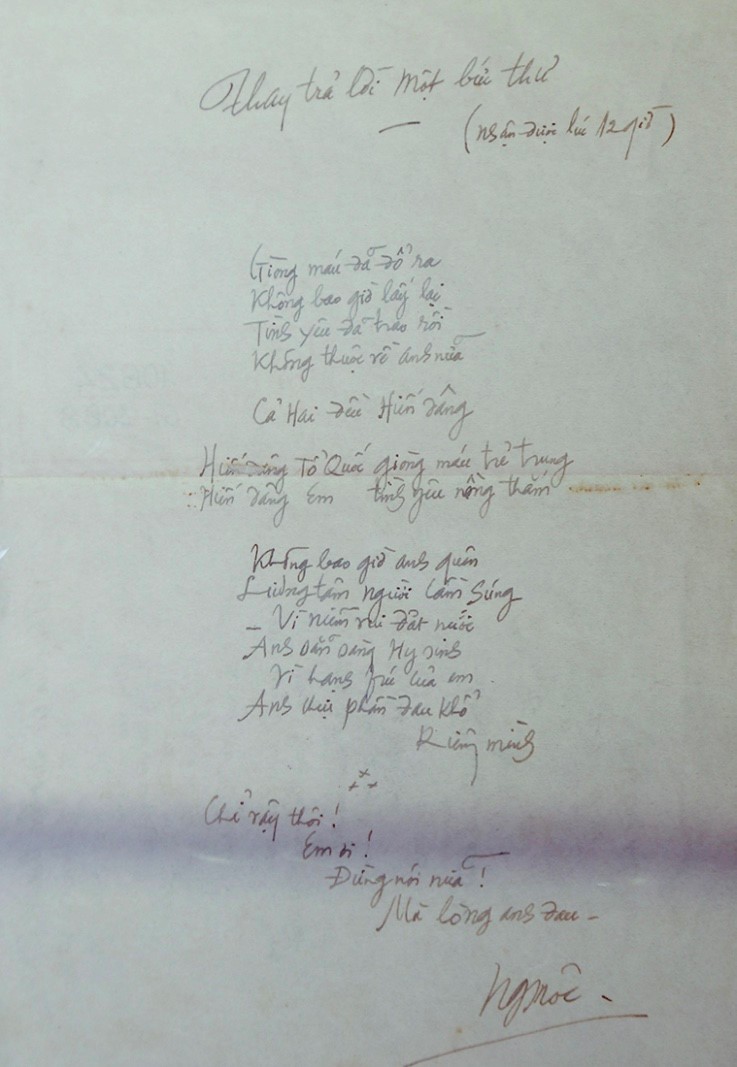 Thay trả lời một bức thư
(nhận được lúc 12 giờ)
Giòng máu đã đổ ra
Không bao giờ lấy lại
Tình yêu đã trao rồi
Không thuộc về anh nữa
Cả Hai đều Hiến dâng
Hiến dâng Tổ Quốc giòng máu trẻ trung
Hiến dâng Em tình yêu nồng thắm
Không bao giờ anh quên
Lương tâm người Cầm Súng
_ Vì niềm vui đất nước
Anh sẵn sàng Hy sinh
Vì hạnh phúc của em.
Anh chịu phần đau khổ
Riêng mình
Chỉ vậy thôi!
Em ơi!
Đừng nói nữa!
Mà lòng anh đau -